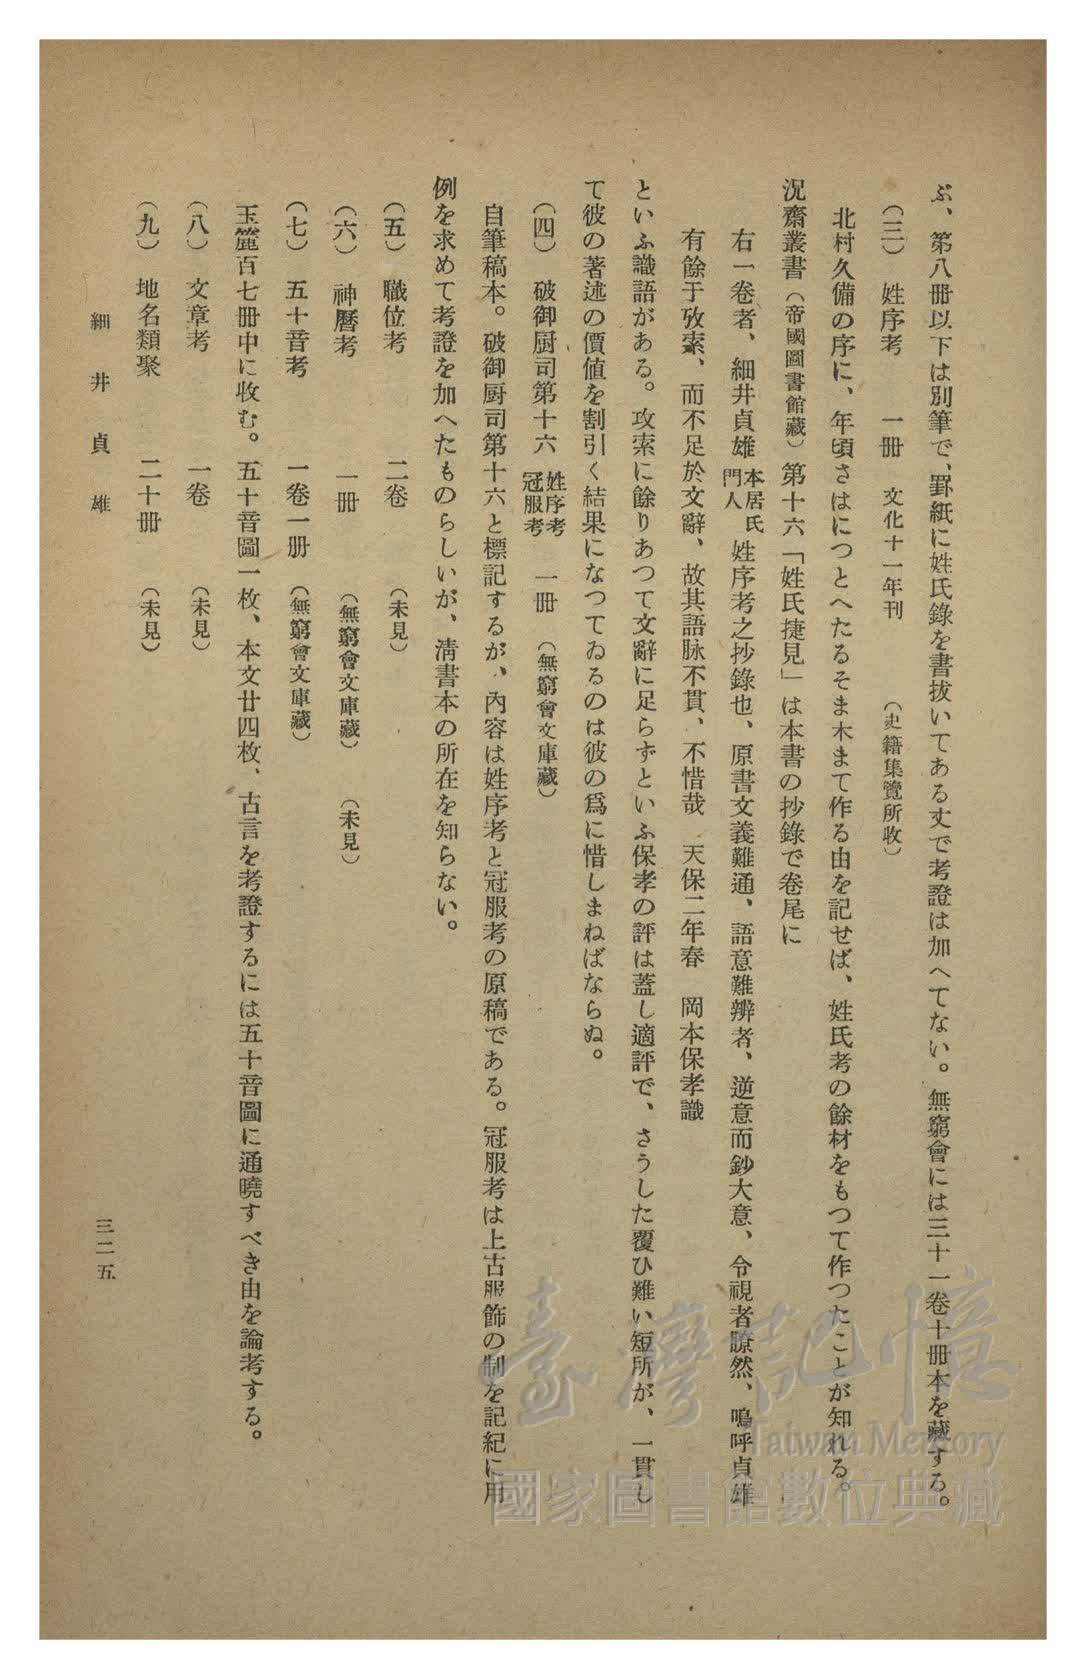 ぶ、第八冊以下は別筆で、罫紙に姓氏錄を書拔いてある丈で考證は加へてない。無窮會には三十一卷十冊本を藏する。
（三）　姓序考　　一冊　文化十一年刊　　（史籍集覽所收）
北村久備の序に、年頃さはにつとへたるそま木まて作る由を記せば、姓氏考の餘材をもつて作つたことが知れる。
況齋叢書（帝國圖書館藏）第十六「姓氏捷見」は本書の抄錄で卷尾に
右一卷者、細井貞雄本居氏門人姓序考之抄錄也、原書文義難通、語意難辨者、逆意而鈔大意、令視者瞭然、嗚呼貞雄
有餘于攷索、而不足於文辭、故其語脉不貫、不惜哉　天保二年春　岡本保孝識
といふ識語がある。攻索に餘りあつて文辭に足らずといふ保孝の評は蓋し適評で、さうした覆ひ難い短所が、一貫し
て彼の著述の價値を割引く結果になつてゐるのは彼の爲に惜しまねばならぬ。
（四）　破御厨司第十六　姓序考冠服考　一冊　（無窮會文庫藏）
自筆稿本。破御厨司第十六と標記するが、內容は姓序考と冠服考の原稿である。冠服考は上古服飾の制を記紀に用
例を求めて考證を加へたものらしいが、淸書本の所在を知らない。
（五）　職位考　　　二卷　　（未見）
（六）　神曆考　　　一冊　　（無窮會文庫藏）　（未見）
（七）　五十音考　　　一卷一册　（無窮會文庫藏）
玉簏百七冊中に收む。五十音圖一枚、本文廿四枚、古言を考證するには五十音圖に通曉すべき由を論考する。
（八）　文章考　　　一卷　　（未見）
（九）　地名類聚　　　二十冊　　（未見）
細井貞雄
三二五
臺灣記憶
Taiwan Memory
國家圖書館數位典藏